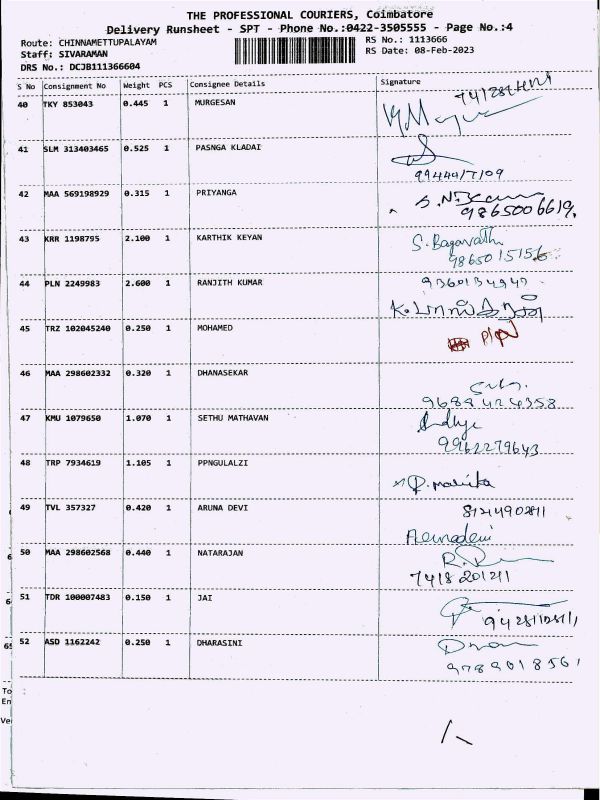 THE PROFESSIONAL COURIERS, Coimbatore
Delivery Runsheet - SPT - Phone No.:0422-3505555 - Page No.:4
Route: CHINNAMETTUPALAYAM RS No.: 1113666
Staff: SIVARAMAN RS Date: 08-Feb-2023
DRS No.: DCJB111366604
S No Consignment No Weight PCS Consignee Details Signature
40 TKY 853043 0.445 1 MURGESAN
41 SLM 313403465 0.525 1 PASNGA KLADAI
42 MAA 569198929 0.315 1 PRIYANGA
9865006619
43 KRR 1198795 2.100 1 KARTHIK KEYAN
S. Bagavathi
9865015156
44 PLN 2249983 2.600 1 RANJITH KUMAR
45 TRZ 102045240 0.250 1 MOHAMED
46 MAA 298602332 0.320 1 DHANASEKAR
47 KMU 1079650 1.070 1 SETHU MATHAVAN
9962279643
48 TRP 7934619 1.105 1 PPNGULALZI
49 TVL 357327 0.420 1 ARUNA DEVI
50 MAA 298602568 0.440 1 NATARAJAN
7418201211
51 TDR 100007483 0.150 1 JAI
52 ASD 1162242 0.250 1 DHARASINI
9789018561